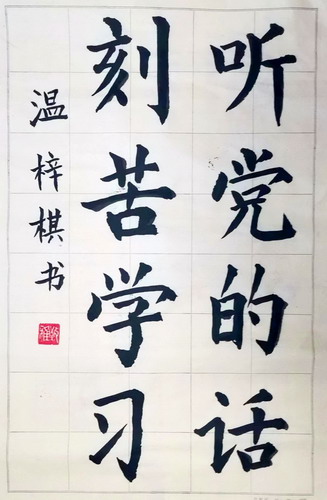 听党的话
刻苦学习
温梓棋书